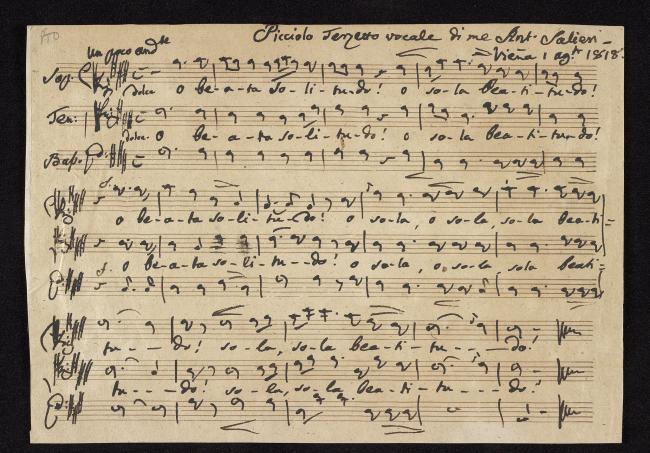 Picciolo Terzetto vocale di me Ant. Salieri
un poco and.te
Vieña 1 ag.to 1818.
Sop.
dolce o be-a-ta so-li-tu-do! o so-la bea-ti-tu-do!
Ten:
dolce. o be-a-ta so-li-tu-do! o so-la bea-ti-tu-do!
Bass.
o be-a-ta so-li-tu-do! o so-la, o so-la, so-la bea-ti=
o be-a-ta so-li-tu--do! o so-la, o so-la, sola beati=
tu---do! so-la, so-la bea-ti-tu---do!
tu---do! so-la, so-la bea-ti-tu---do!